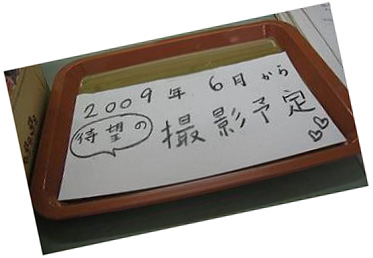 2009年 6月から
待望の
撮影予定